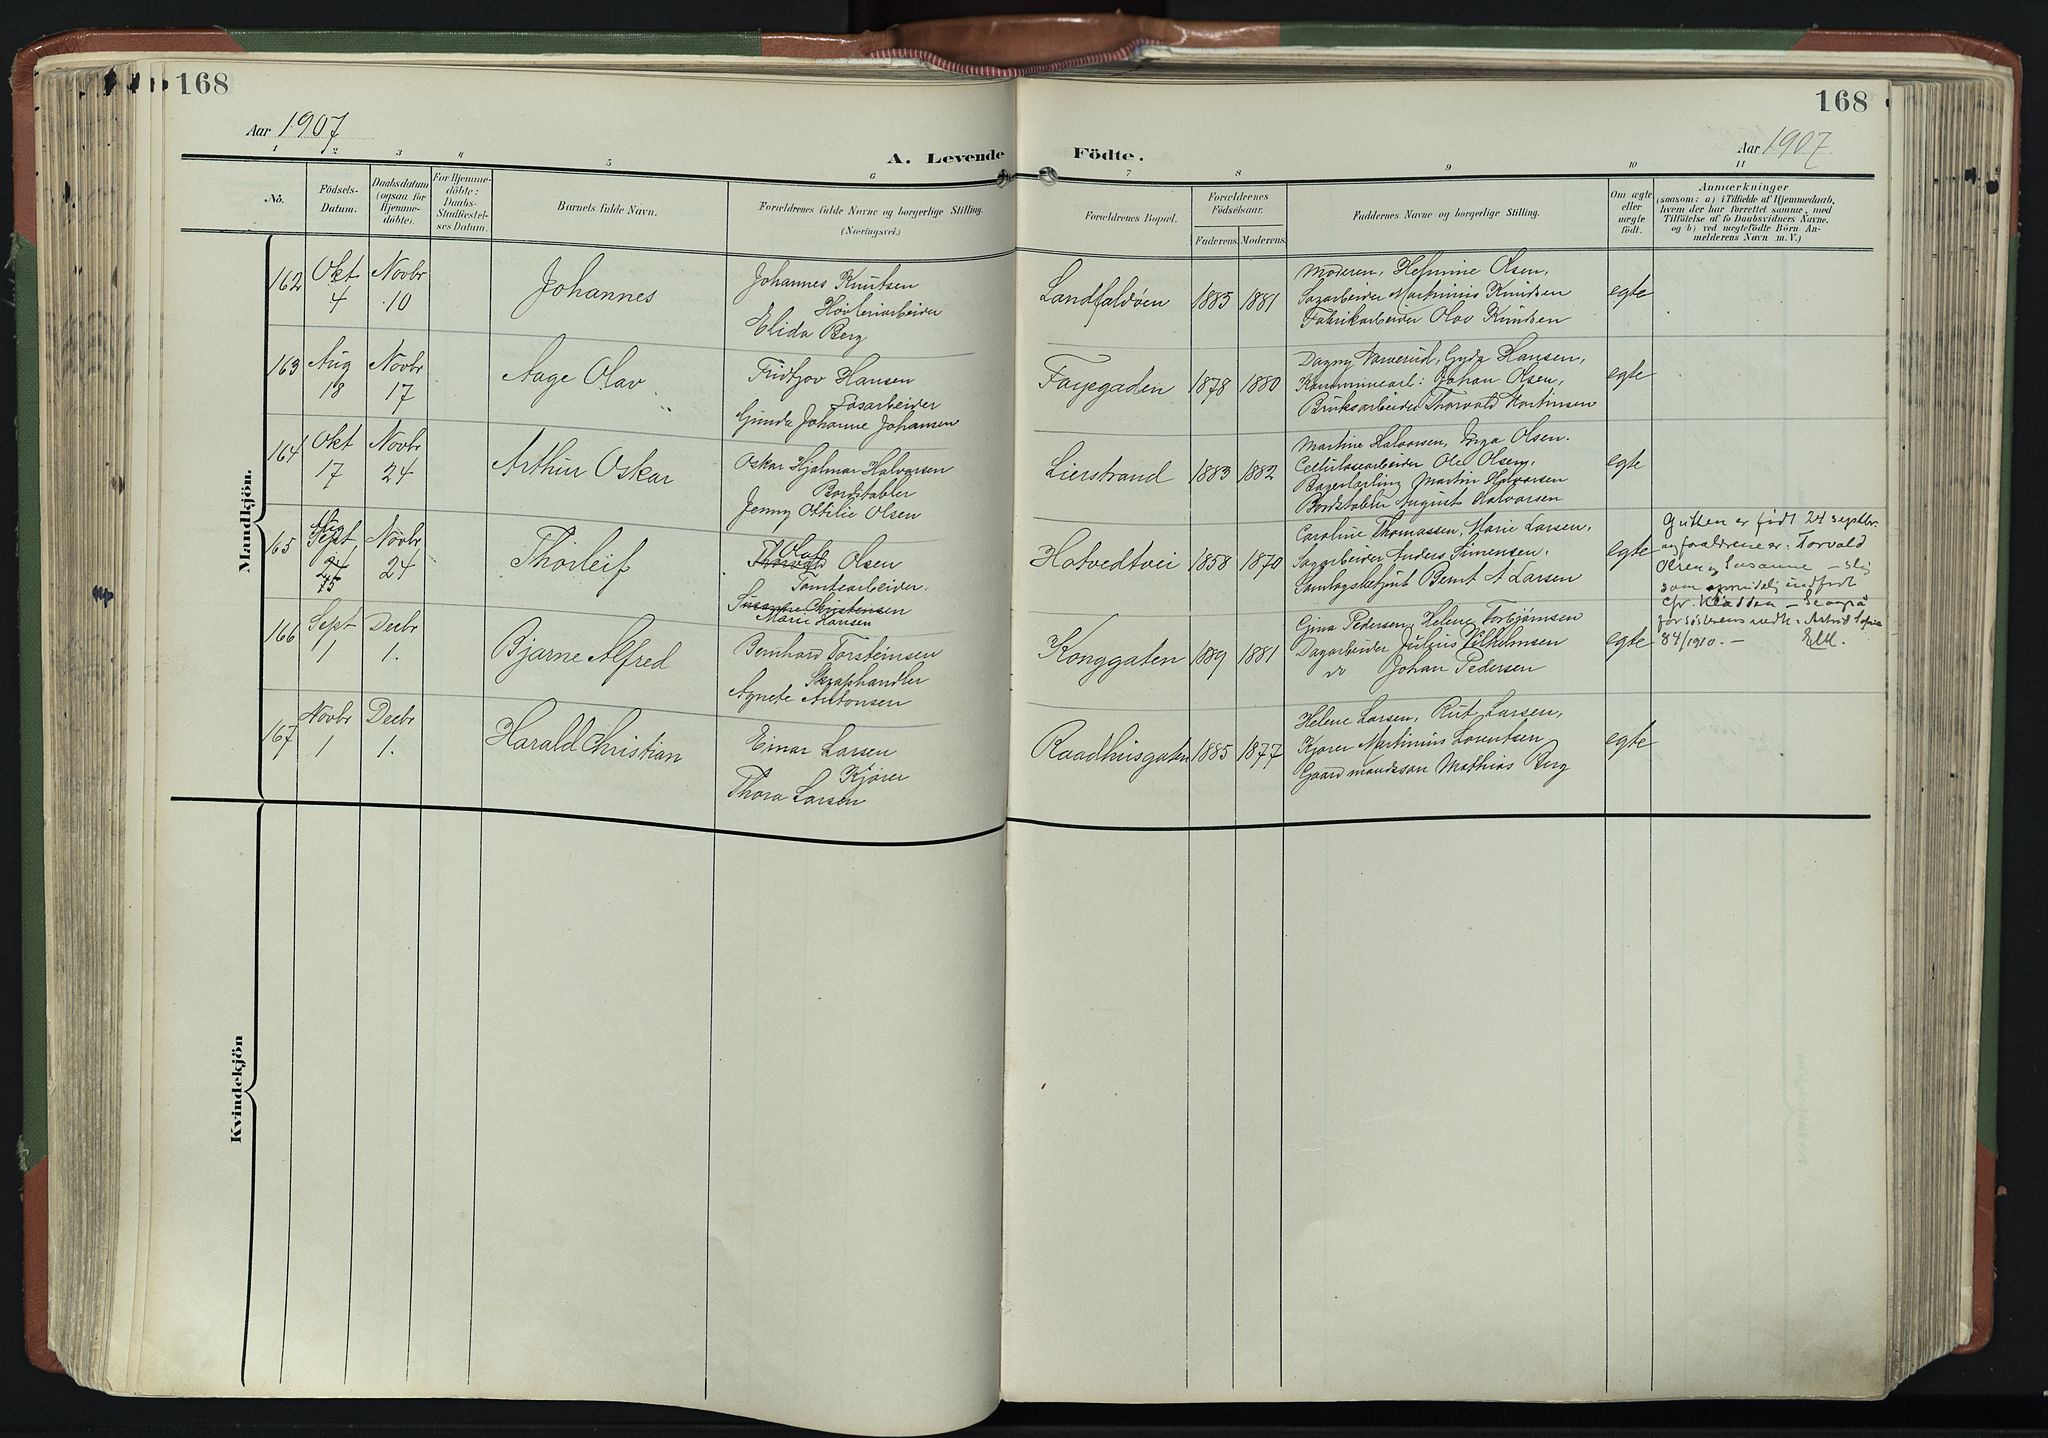 168
168
Aar 1907
Aar 1907
A. Levende Födte.
1 2 3 4 5 6 7 8 9 10 11
No.
Födsels-
Datum.
Daabsdatum
(ogsaa for
Hjemme-
döbte).
For Hjemme-
döbte:
Daabs-
Stadfæstel-
ses Datum.
Barnets fulde Navn.
Forældrenes fulde Navne og borgerlige Stilling.
(Næringsvei.)
Forældrenes Bopæl.
Forældrenes
Födselsaar.
Faderens. Moderens.
Faddernes Navne og borgerlige Stilling.
Om ægte
eller
uægte
födt.
Anmærkninger
(saasom: a) i Tilfælde af Hjemmedaab,
hvem der har forrettet samme, med
Tilföielse af to Daabsvidners Navne.
og b) ved uægtefödte Börn An-
melderens Navn m. V.)
Mandkjön.
162 Okt 4 Novbr 10 Johannes
Johannes Knutsen
Høvleriarbeider
Elida Berg
Landfaldøen 1883 1881
Moderen, Hefmine Olsen,
Sagarbeider Martinius Knudsen
Fabrikarbeider Olav Knudsen
egte
163 Aug 18 Novbr 17 Aage Olav
Fridtjov Hansen
Løsarbeider
Gunda Johanne Johansen
Fayegaden 1878 1880
Dagny Narverud, Gyda Hansen,
Kommunearb: Johan Olsen,
Bruksarbeider Thorvald Martinsen
egte
164 Okt 17 Novbr 24 Arthur Oskar
Oskar Hjalmar Halvorsen
Bordstabler
Jenny Ottilie Olsen
Lierstrand 1883 1882
Martine Halvorsen, Inga Olsen.
Cellulosearbeider Ole Olsen,
Bagerlærling Martin Halvorsen
Bordstabler August Halvorsen
egte
165 Aug Sept 24 15 Novbr 24 Thorleif
Olaf
Thorvald Olsen
Tomtearbeider.
Susanne Christensen
Marie Hansen
Hotvedtvei 1858 1870
Caroline Thomassen, Marie Larsen,
Sagarbeider Anders Simensen,
Samlagsbetjent Bernt A Larsen
egte
Gutten er født 24 septbr.
og foraldrene er: Torvald
Olsen og Susanne –
som oprindelig indført
cfr. Kladden –
84/1910. –
166 Sept 1 Decbr 1. Bjarne Alfred
Bernhard Torsteinsen
Skraphandler
Agnete Antonsen
Konggaten 1889 1881
Gina Pedersen, Helene Torbjørnsen
Dagarbeider Julius Vilhelmsen
do Johan Pedersen
egte
167 Novbr 1 Decbr 1. Harald Christian
Einar Larsen
Kjører
Thora Larsen
Raadhusgaten 1885 1877
Helene Larsen, Rut Larsen,
Kjører Martinius Lorentsen
Gaardmandssøn Mathias Berg
egte
Kvindekjön